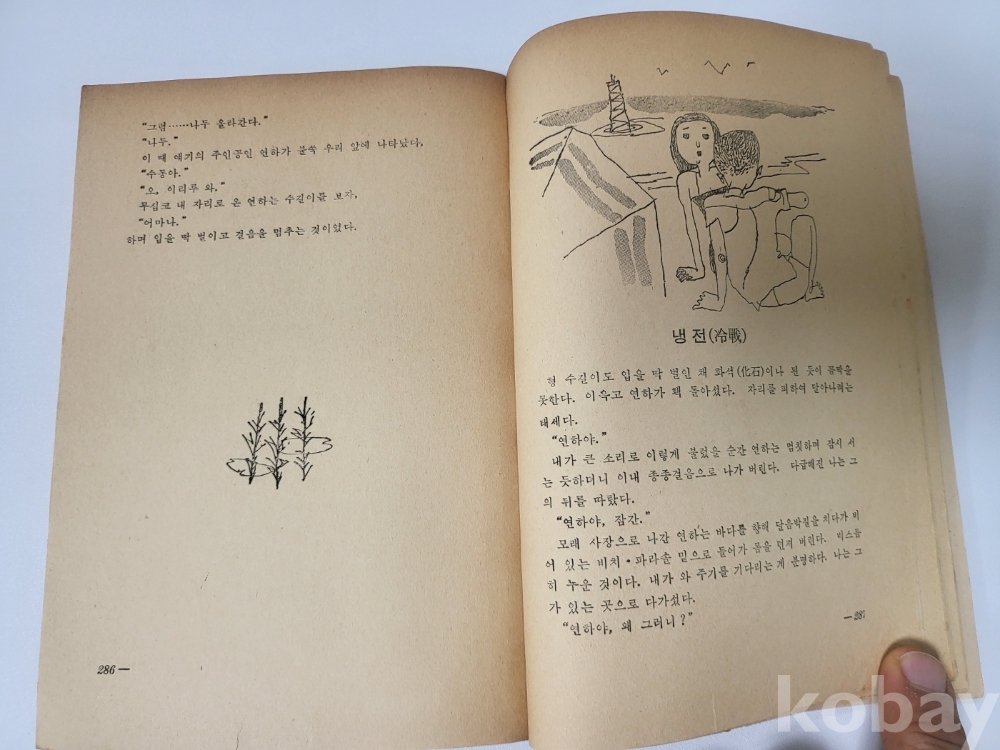 "그럼……나두 올라간다."
"나두."
이 때 얘기의 주인공인 연하가 불쑥 우리 앞에 나타났다,
"수동아."
"오, 이리루 와."
무심코 내 자리로 온 연하는 수길이를 보자,
"어마나."
하며 입을 딱 벌이고 걸음을 멈추는 것이었다.
286 —
냉 전(冷戰)
형 수길이도 입을 딱 벌인 채 화석(化石)이나 된 듯이 꼼짝을
못한다. 이윽고 연하가 핵 돌아섰다. 자리를 피하여 달아나려는
태세다.
"연하야."
내가 큰 소리로 이렇게 불렀을 순간 연하는 멈칫하며 잠시 서
는 듯하더니 이내 종종걸음으로 나가 버린다. 다급해진 나는 그
의 뒤를 따랐다.
"연하야, 잠간."
모래 사장으로 나간 연하는 바다를 향해 달음박질을 치다가 비
어 있는 비치·파라솔 밑으로 들어가 몸을 던져 버린다.
히 누운 것이다. 내가 와 주기를 기다리는 게 분명하다. 나는 그
가 있는 곳으로 다가섰다.
"연하야, 왜 그러니?"
—287
kobay